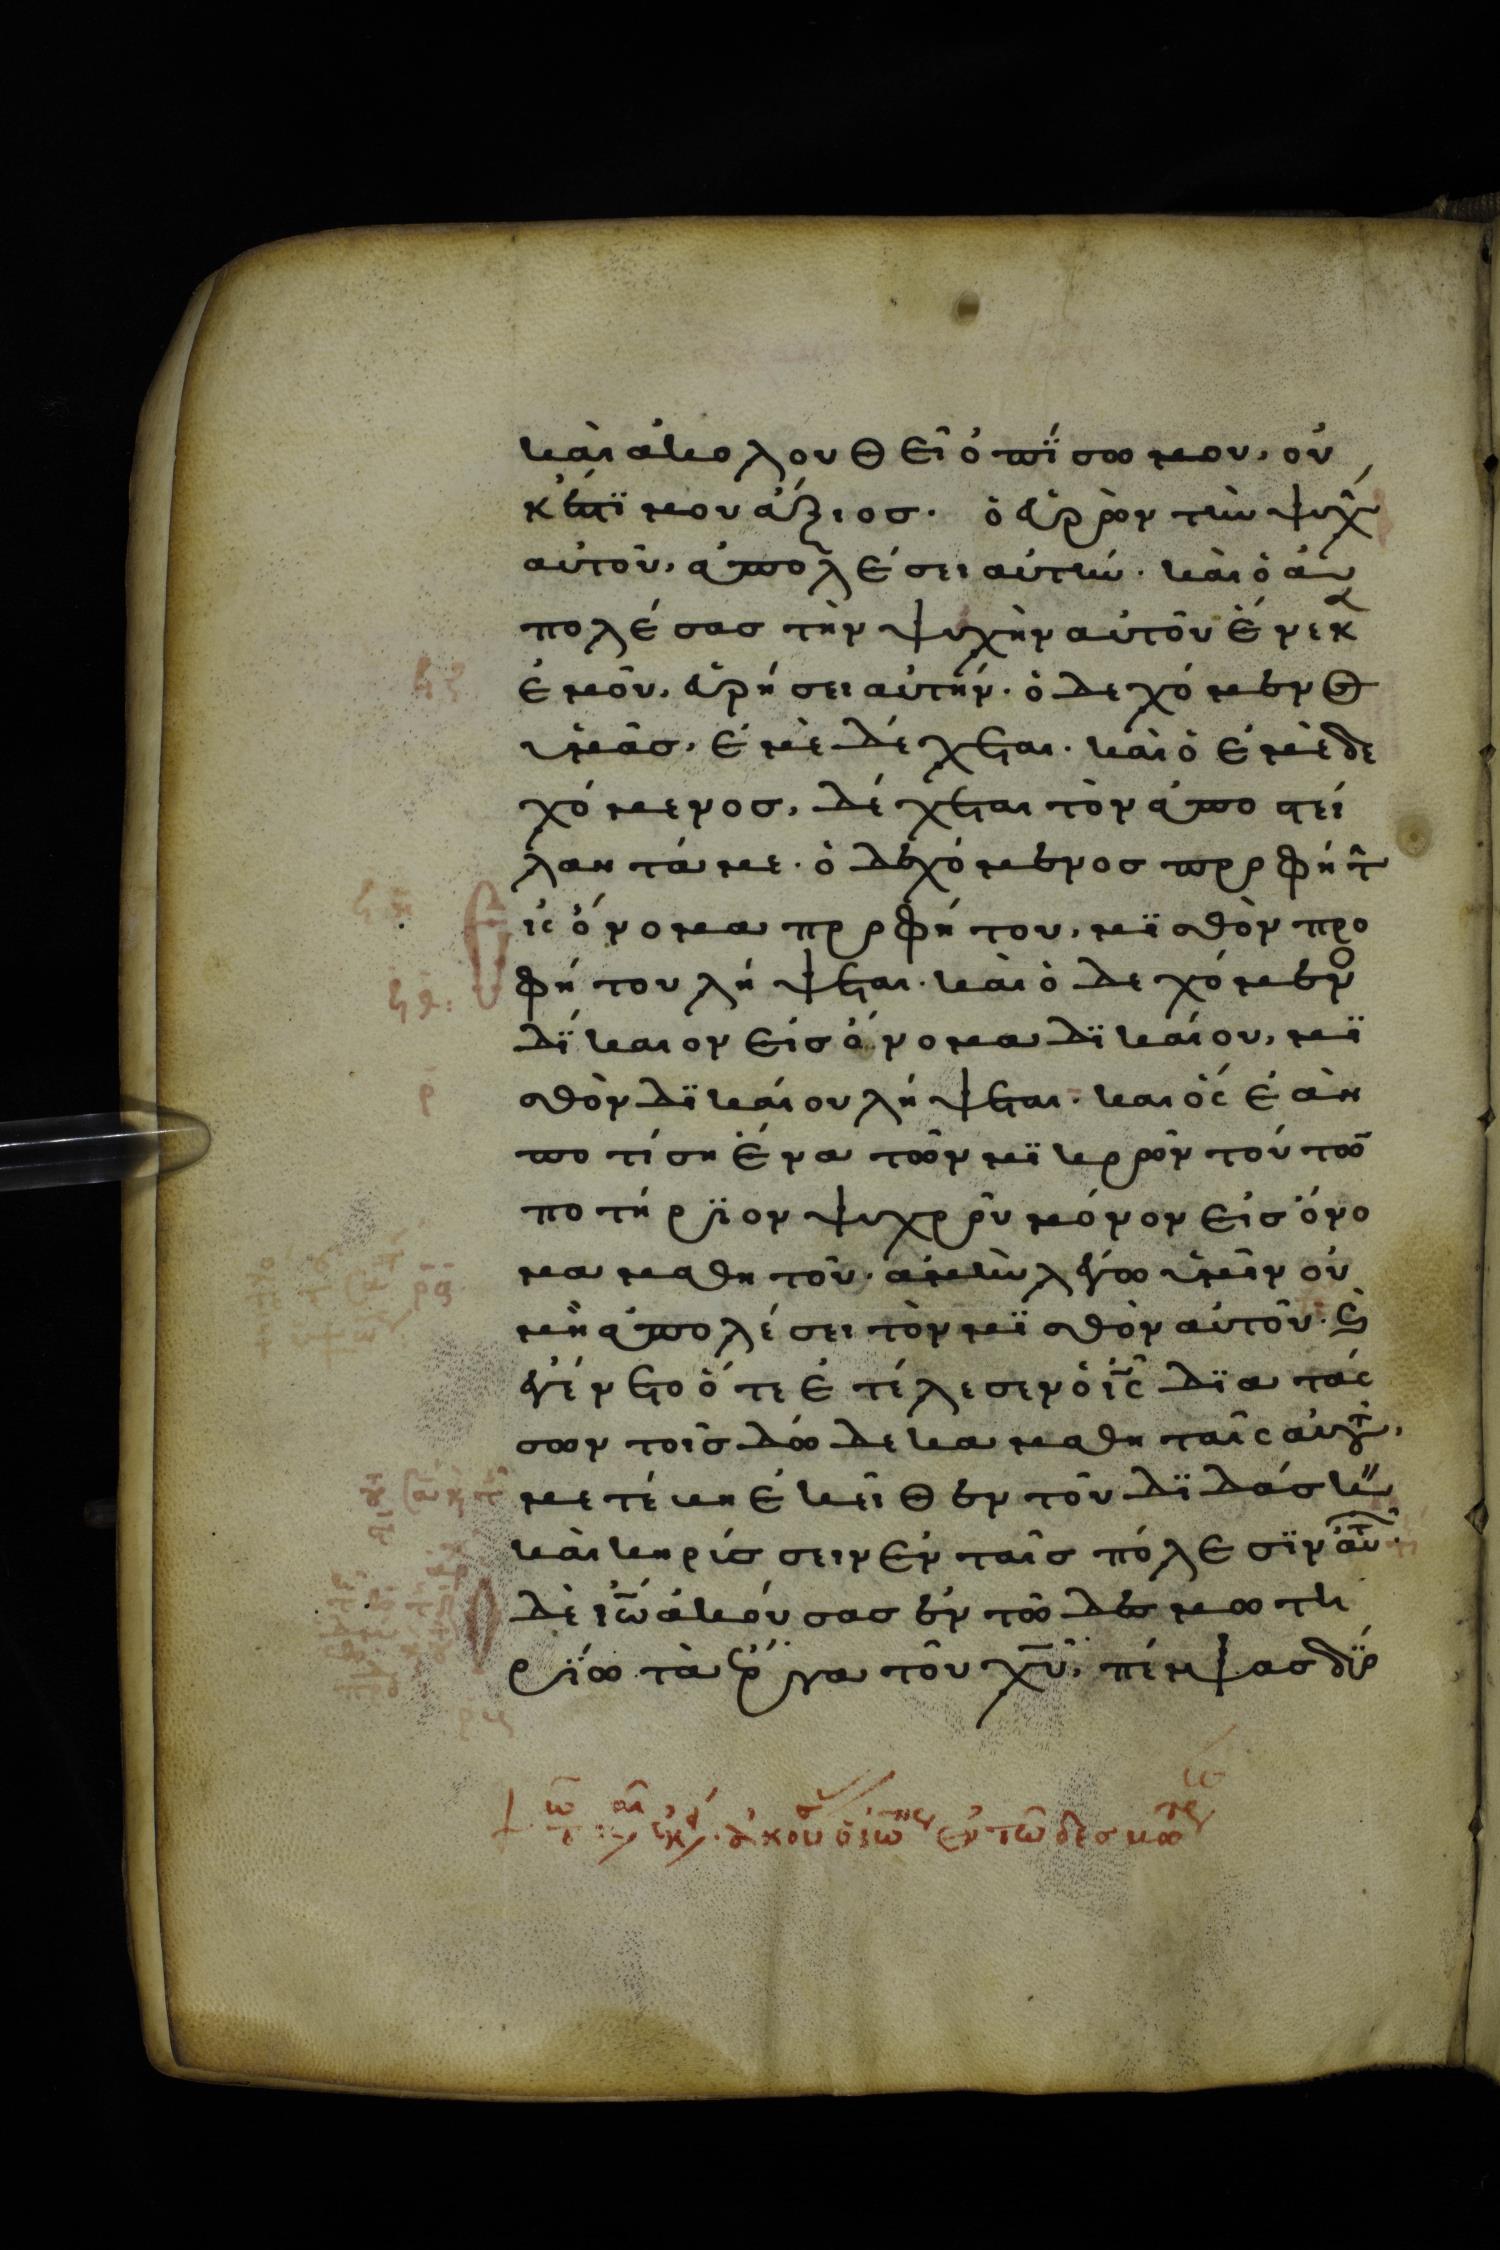 καὶ ἀκολουθεῖ ὀπΐσω μου, οὐ
κ ἔστϊ μου ἄξιοσ. ὁ εὑρὼν τὴν ψυχὴ
αὐτοῦ, ἀπολέσει αὐτὴν. καὶ ὁ ἀ
πολέσασ τὴν ψυχὴν αὐτοῦ ἕνεκα
ἐμοῦ, εὑρήσει αὐτήν. ὁ δεχόμενος
ὑμᾶσ, ἐμὲ δέχεται. καὶ ὁ ἐμὲ δε
χόμενοσ, δέχεται τὸν ἀποστεί
λαντά με. ὁ δεχόμενοσ προφήτ
ις ὄνομα προφήτου, μϊσθὸν προ
φήτου λήψεται. καὶ ὁ δεχόμενο
δΐκαιον εἰσ ὄνομα δϊκαίου, μϊ
σθὸν δϊκαίου λήψεται. και ὃς ἐὰν
ποτίση ἕνα τῶν μϊκρῶν τούτω
ποτήρϊον ψυχροῦν μόνον εἰσ ὄνο
μα μαθητοῦ. ἀμὴν λέγω ὑμῖν οὐ
μὴ ἀπολέσει τὸν μϊσθὸν αὐτοῦ. Καὶ
ἐγένετο ὅτε ἐτέλεσεν ὁ ις δϊατάς
σων τοῖσ δώδεκα μαθηταῖς αὐτ,
μετέβη ἐκεῖθεν τοῦ δϊδάσκ
καὶ κηρίσσειν ἐν ταῖσ πόλεσϊν αὐτ.
δὲ ιω ἀκούσασ ἐν τῶ δεσμωτη
ρΐω τὰ ἔργα τοῦ χυ, πέμψασ δϋο
ἀκού ὁ ἰω ἐν τῶ δεσμω